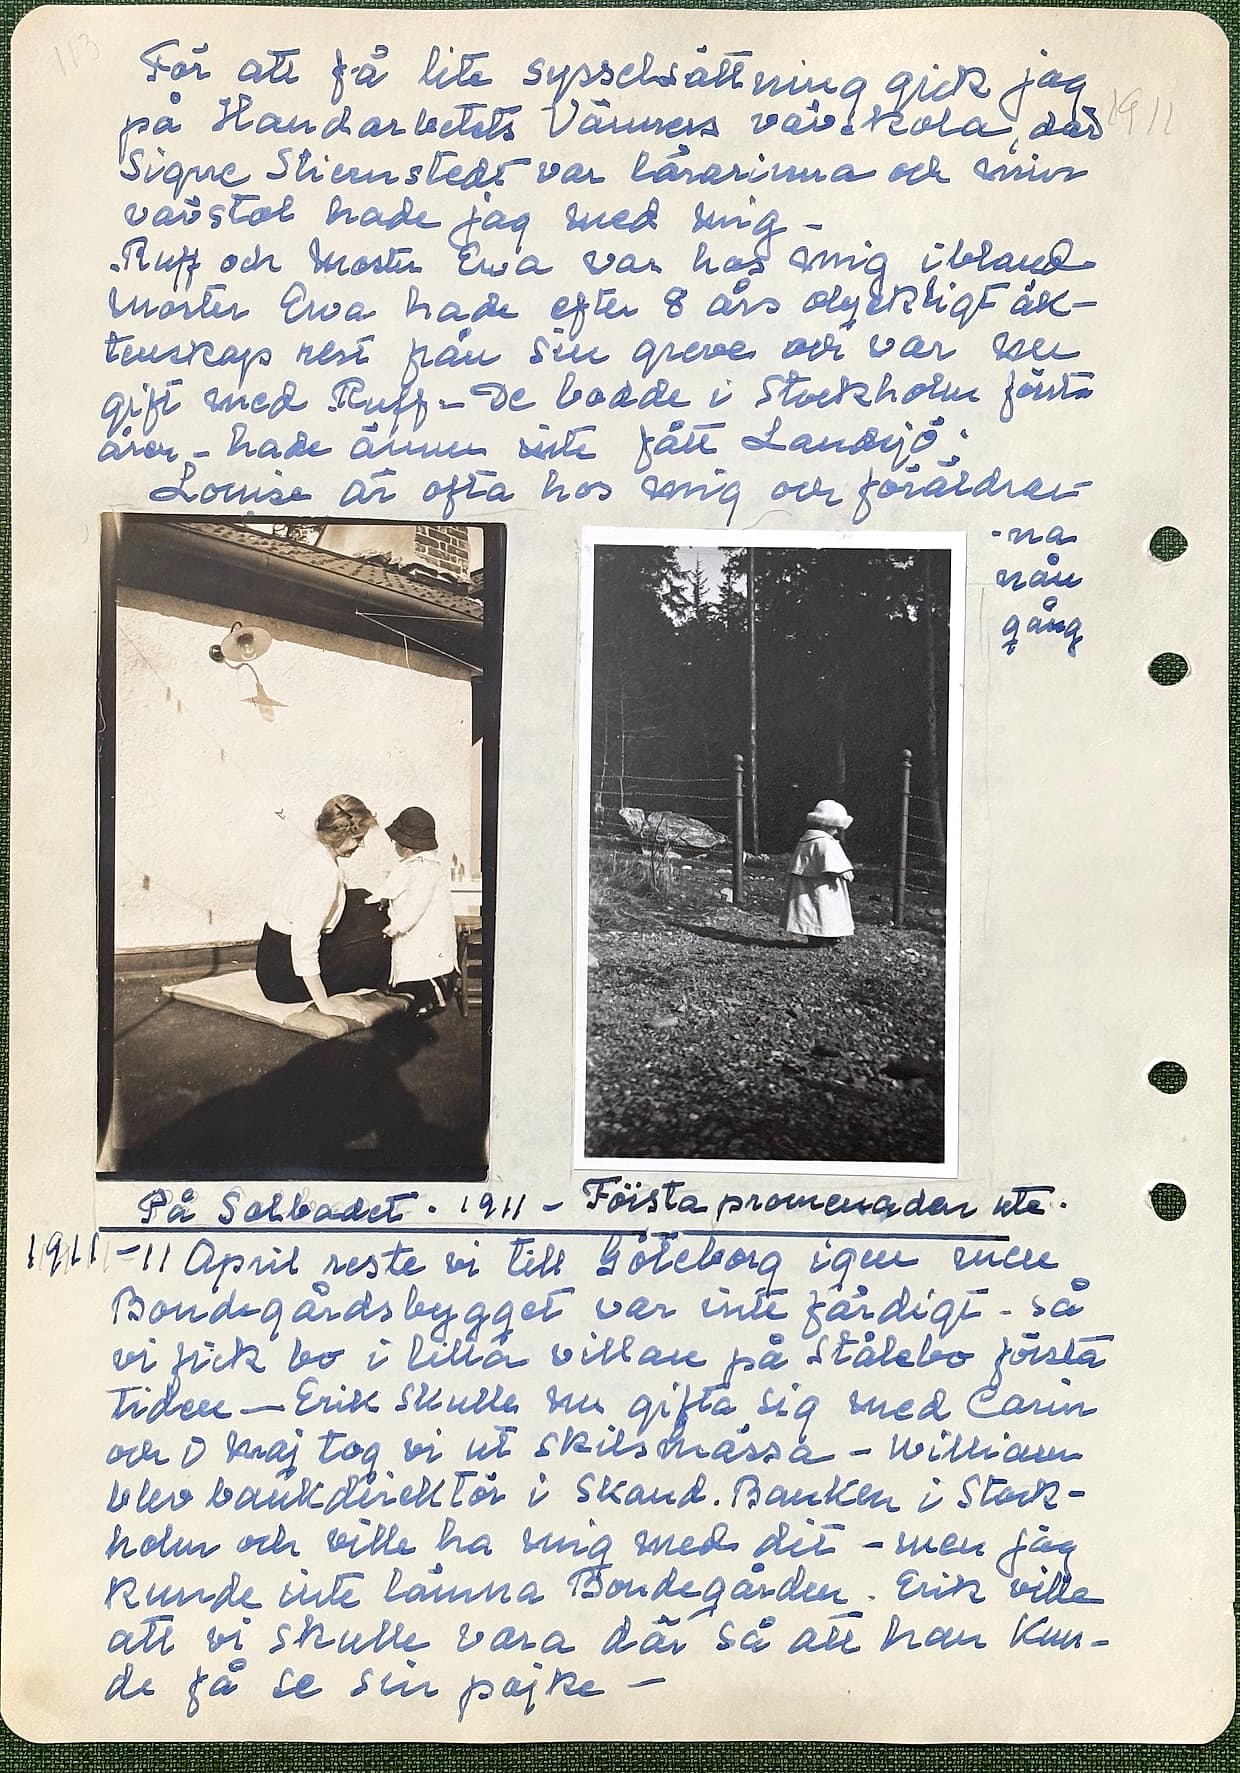 113
För att få lite sysselsättning gick jag
1911
på Handarbetets Vänners vävskola, där
Signe Stiernstedt var lärarinna och min
vävstol hade jag med mig –
Ruff och moster Ewa var hos mig ibland
moster Ewa hade efter 8 års olyckligt äk-
tenskap rest från sin greve och var nu
gift med Ruff – De bodde i Stockholm första
åren – hade ännu inte fått Landsjö.
Louise är ofta hos mig och föräldrar-
-na
nån
gång
På Solbadet . 1911 – Första promenaden ute.
1911 –11 April reste vi till Göteborg igen men
Bondegårdsbygget var inte färdigt – så
vi fick bo i lilla villan på Stålebo första
tiden — Erik skulle nu gifta sig med Carin
och i maj tog vi ut skilsmässa – William
blev bankdirektör i Skand. Banken i Stock-
holm och ville ha mig med dit – men jag
kunde inte lämna Bondegården. Erik ville
att vi skulle vara där så att han kun-
de få se sin pojke –